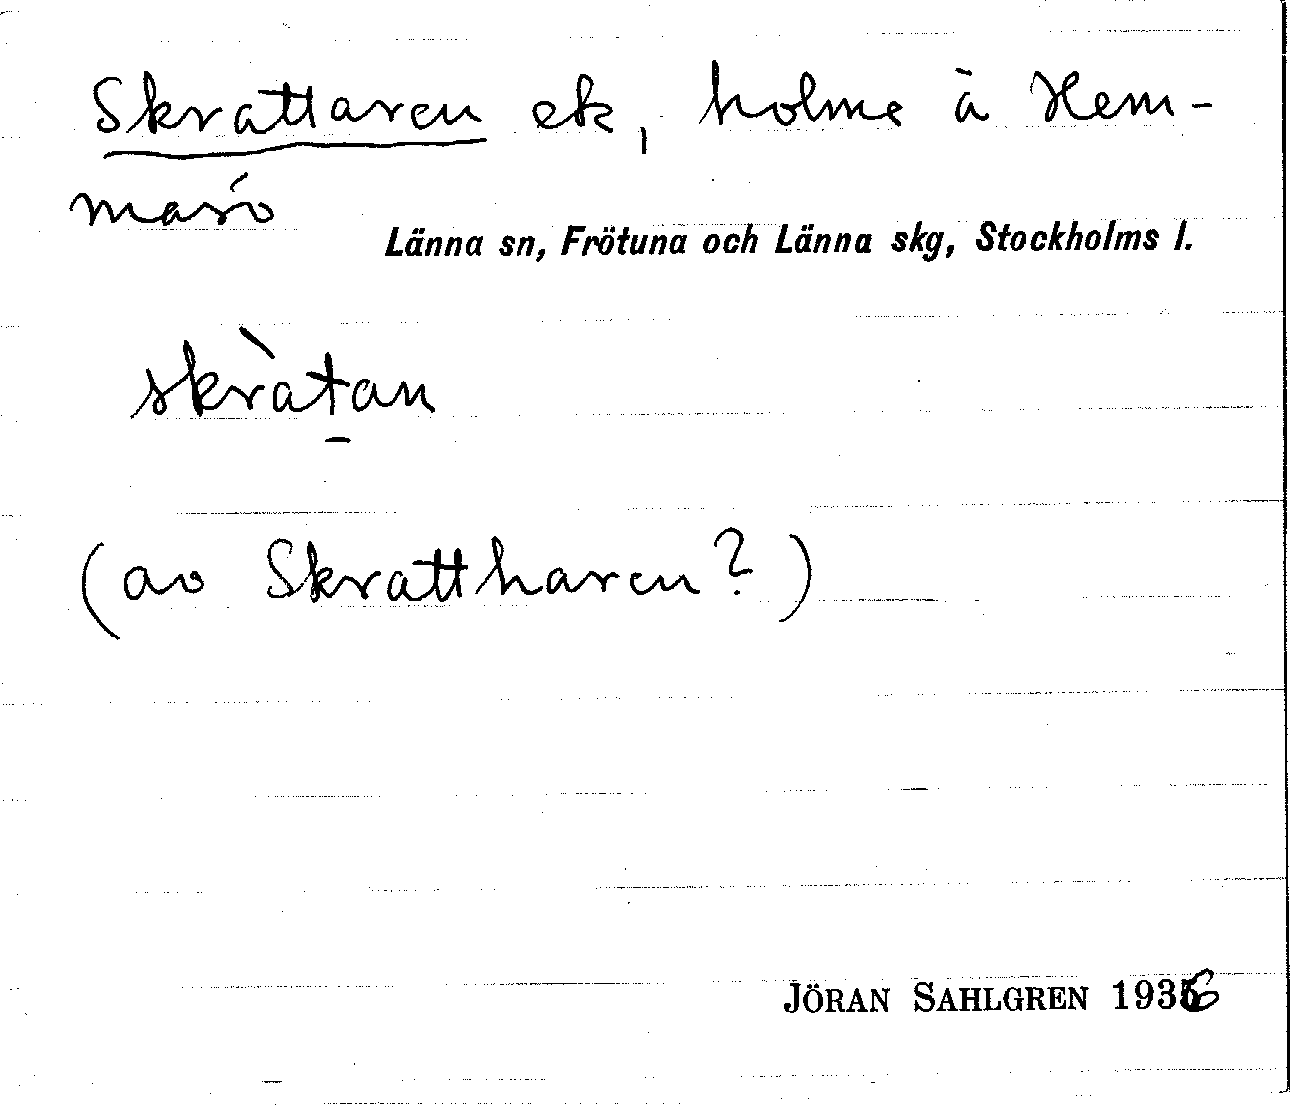 Skrattaren ek, holme å Hem-
marö
Länna sn, Frötuna och Länna skg, Stockholms l.
skràt̠an
(av Skrattharen?)
JÖRAN SAHLGREN 1936